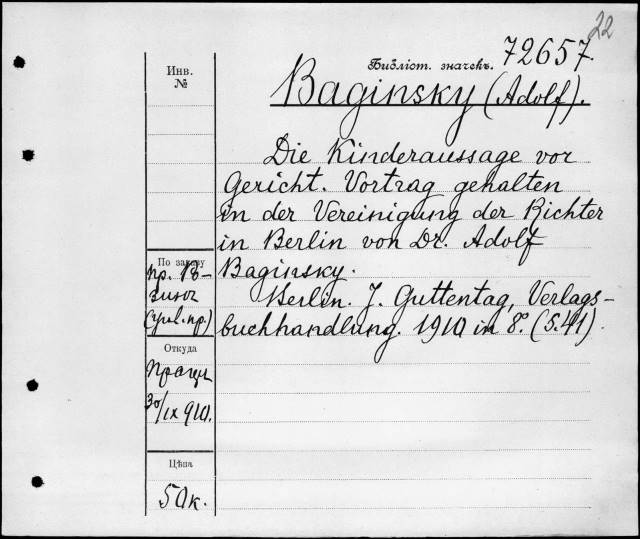 22
Библіот. значекъ. 72657
Baginsky (Adolf).
Die Kinderaussage vor
Gericht. Vortrag gehalten
in der Vereinigung der Richter
in Berlin von Dr. Adolf
Baginsky.
Berlin. J. Guttentag, Verlags-
buchhandlung. 1910 in 8°. (S. 41).
Инв.
№
По заказу
пр.
(угол. пр.)
Откуда
30/IX 910.
Цѣна
50 к.